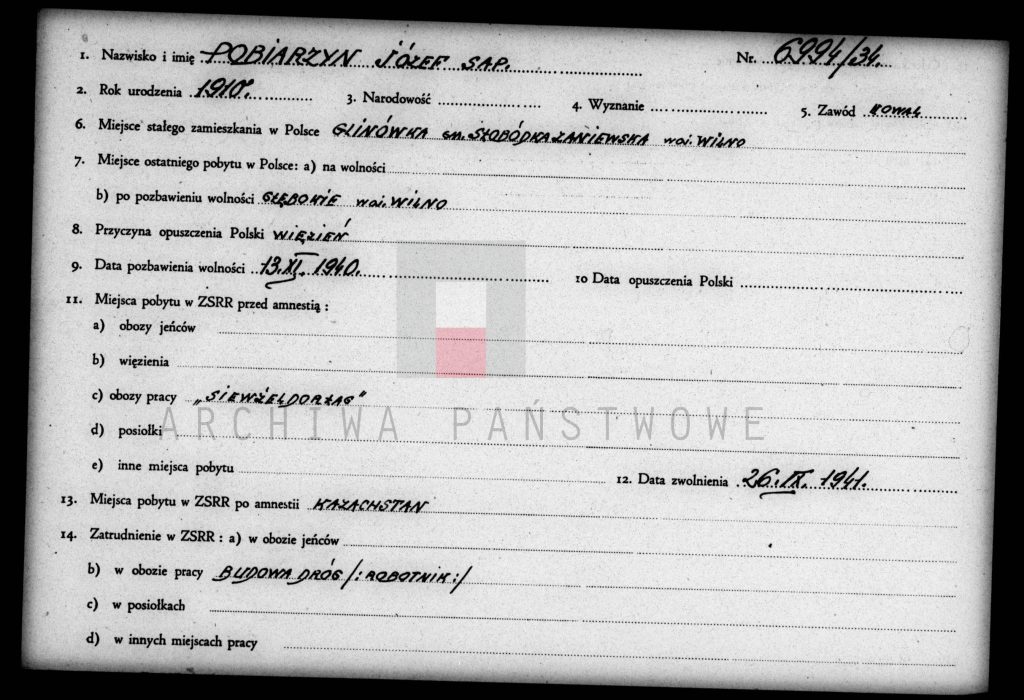 1. Nazwisko i imię POBIARZYN JÓZEF SAP. Nr. 6994/34.
2. Rok urodzenia 1910. 3. Narodowość 4. Wyznanie 5. Zawód KOWAL
6. Miejsce stałego zamieszkania w Polsce GLINÓWKA gm. SŁOBÓDKA ZANIEWSKA woj. WILNO
7. Miejsce ostatniego pobytu w Polsce: a) na wolności
b) po pozbawieniu wolności GŁĘBOKIE woj. WILNO
8. Przyczyna opuszczenia Polski WIĘZIEŃ
9. Data pozbawienia wolności 13.XI. 1940. 10 Data opuszczenia Polski
11. Miejsca pobytu w ZSRR przed amnestią :
a) obozy jeńców
b) więzienia
c) obozy pracy „SIEWŻELDORŁAG"
ARCHIWA PAŃSTWOWE
d) posiołki
e) inne miejsca pobytu 12. Data zwolnienia 26.IX. 1941.
13. Miejsca pobytu w ZSRR po amnestii KAZACHSTAN
14. Zatrudnienie w ZSRR : a) w obozie jeńców
b) w obozie pracy BUDOWA DRÓG /:ROBOTNIK:/
c) w posiołkach
d) w innych miejscach pracy